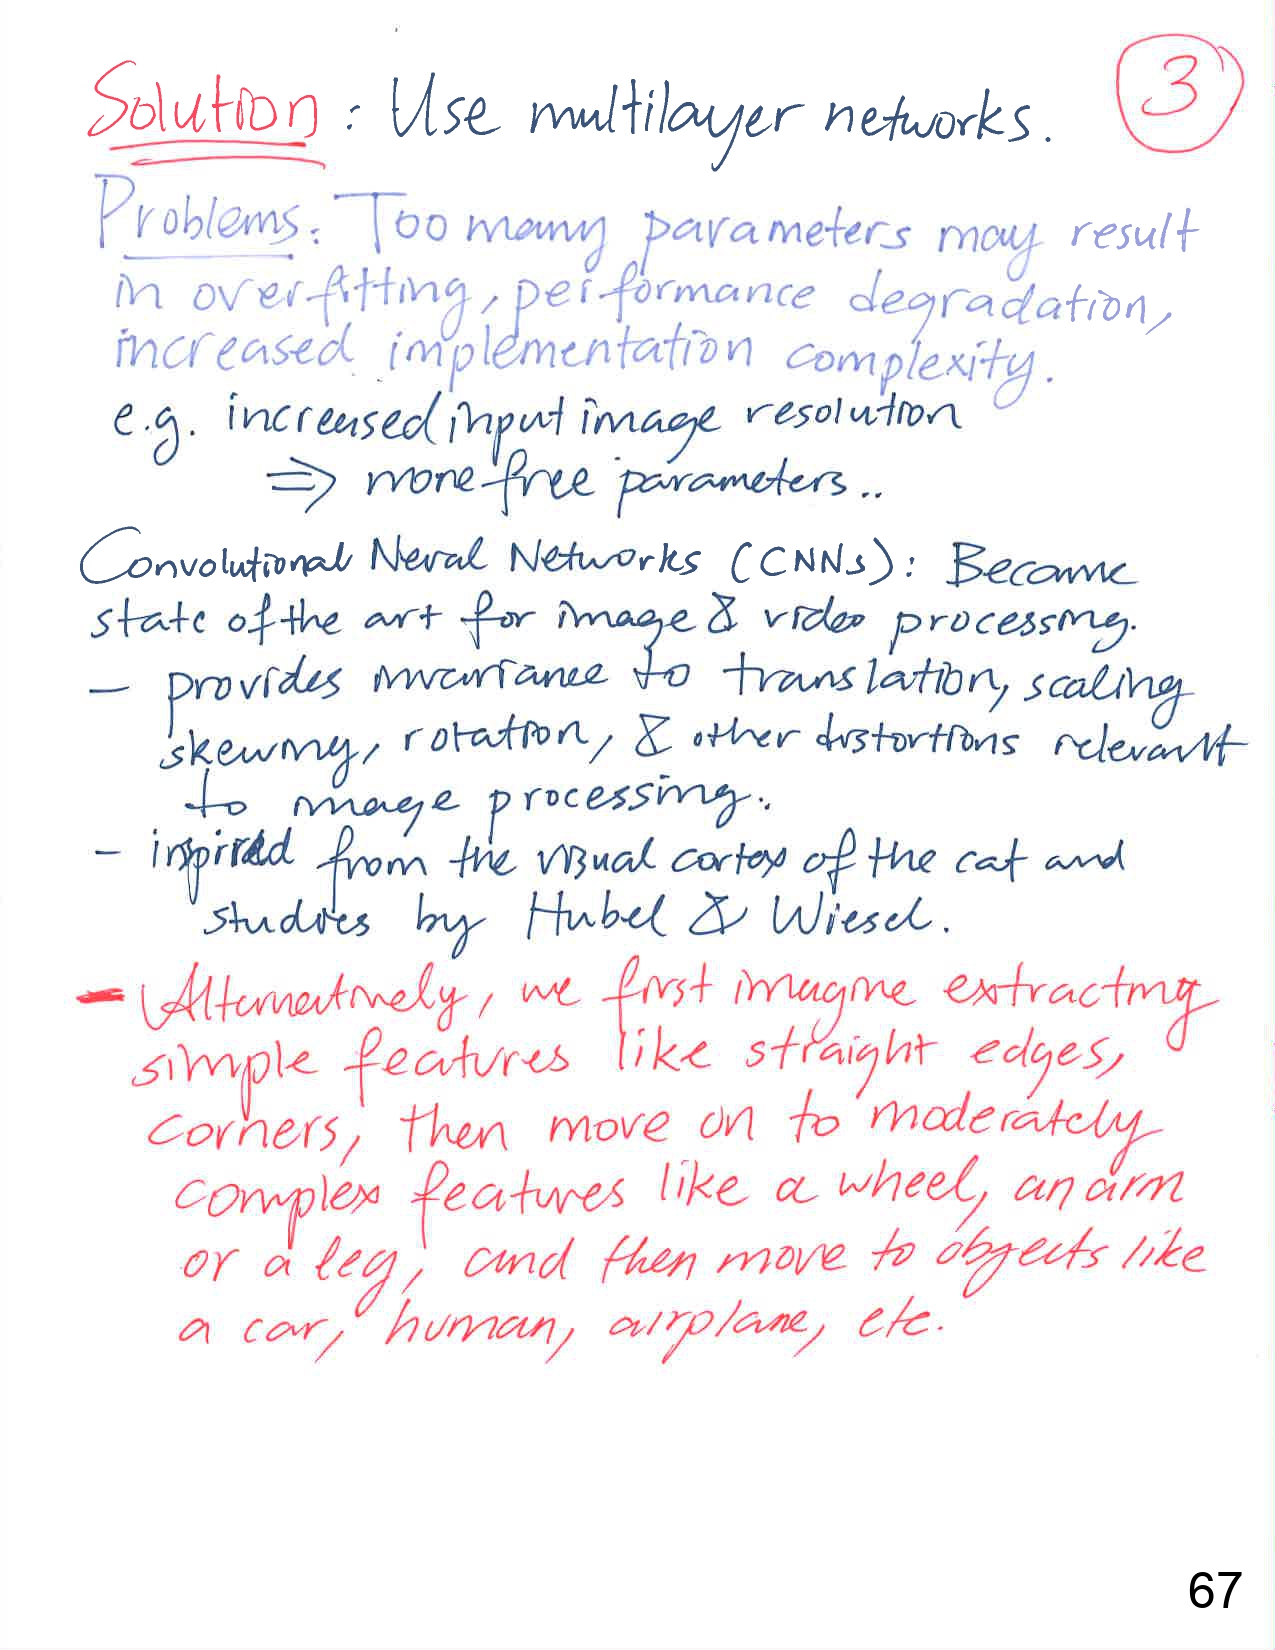 Solution : Use multilayer networks.
3
Problems: Too many parameters may result
in overfitting, performance degradation,
increased implementation complexity.
e.g. increased input image resolution
⇒ more free parameters..
Convolutional Neural Networks (CNNs): Became
state of the art for image & video processing.
- provides invariance to translation, scaling
skewing, rotation, & other distortions relevant
to image processing.
- inspired from the visual cortex of the cat and
studies by Hubel & Wiesel.
- Alternatively, we first imagine extracting
simple features like straight edges,
corners, then move on to moderately
complex features like a wheel, an arm
or a leg, and then move to objects like
a car, human, airplane, etc.
67